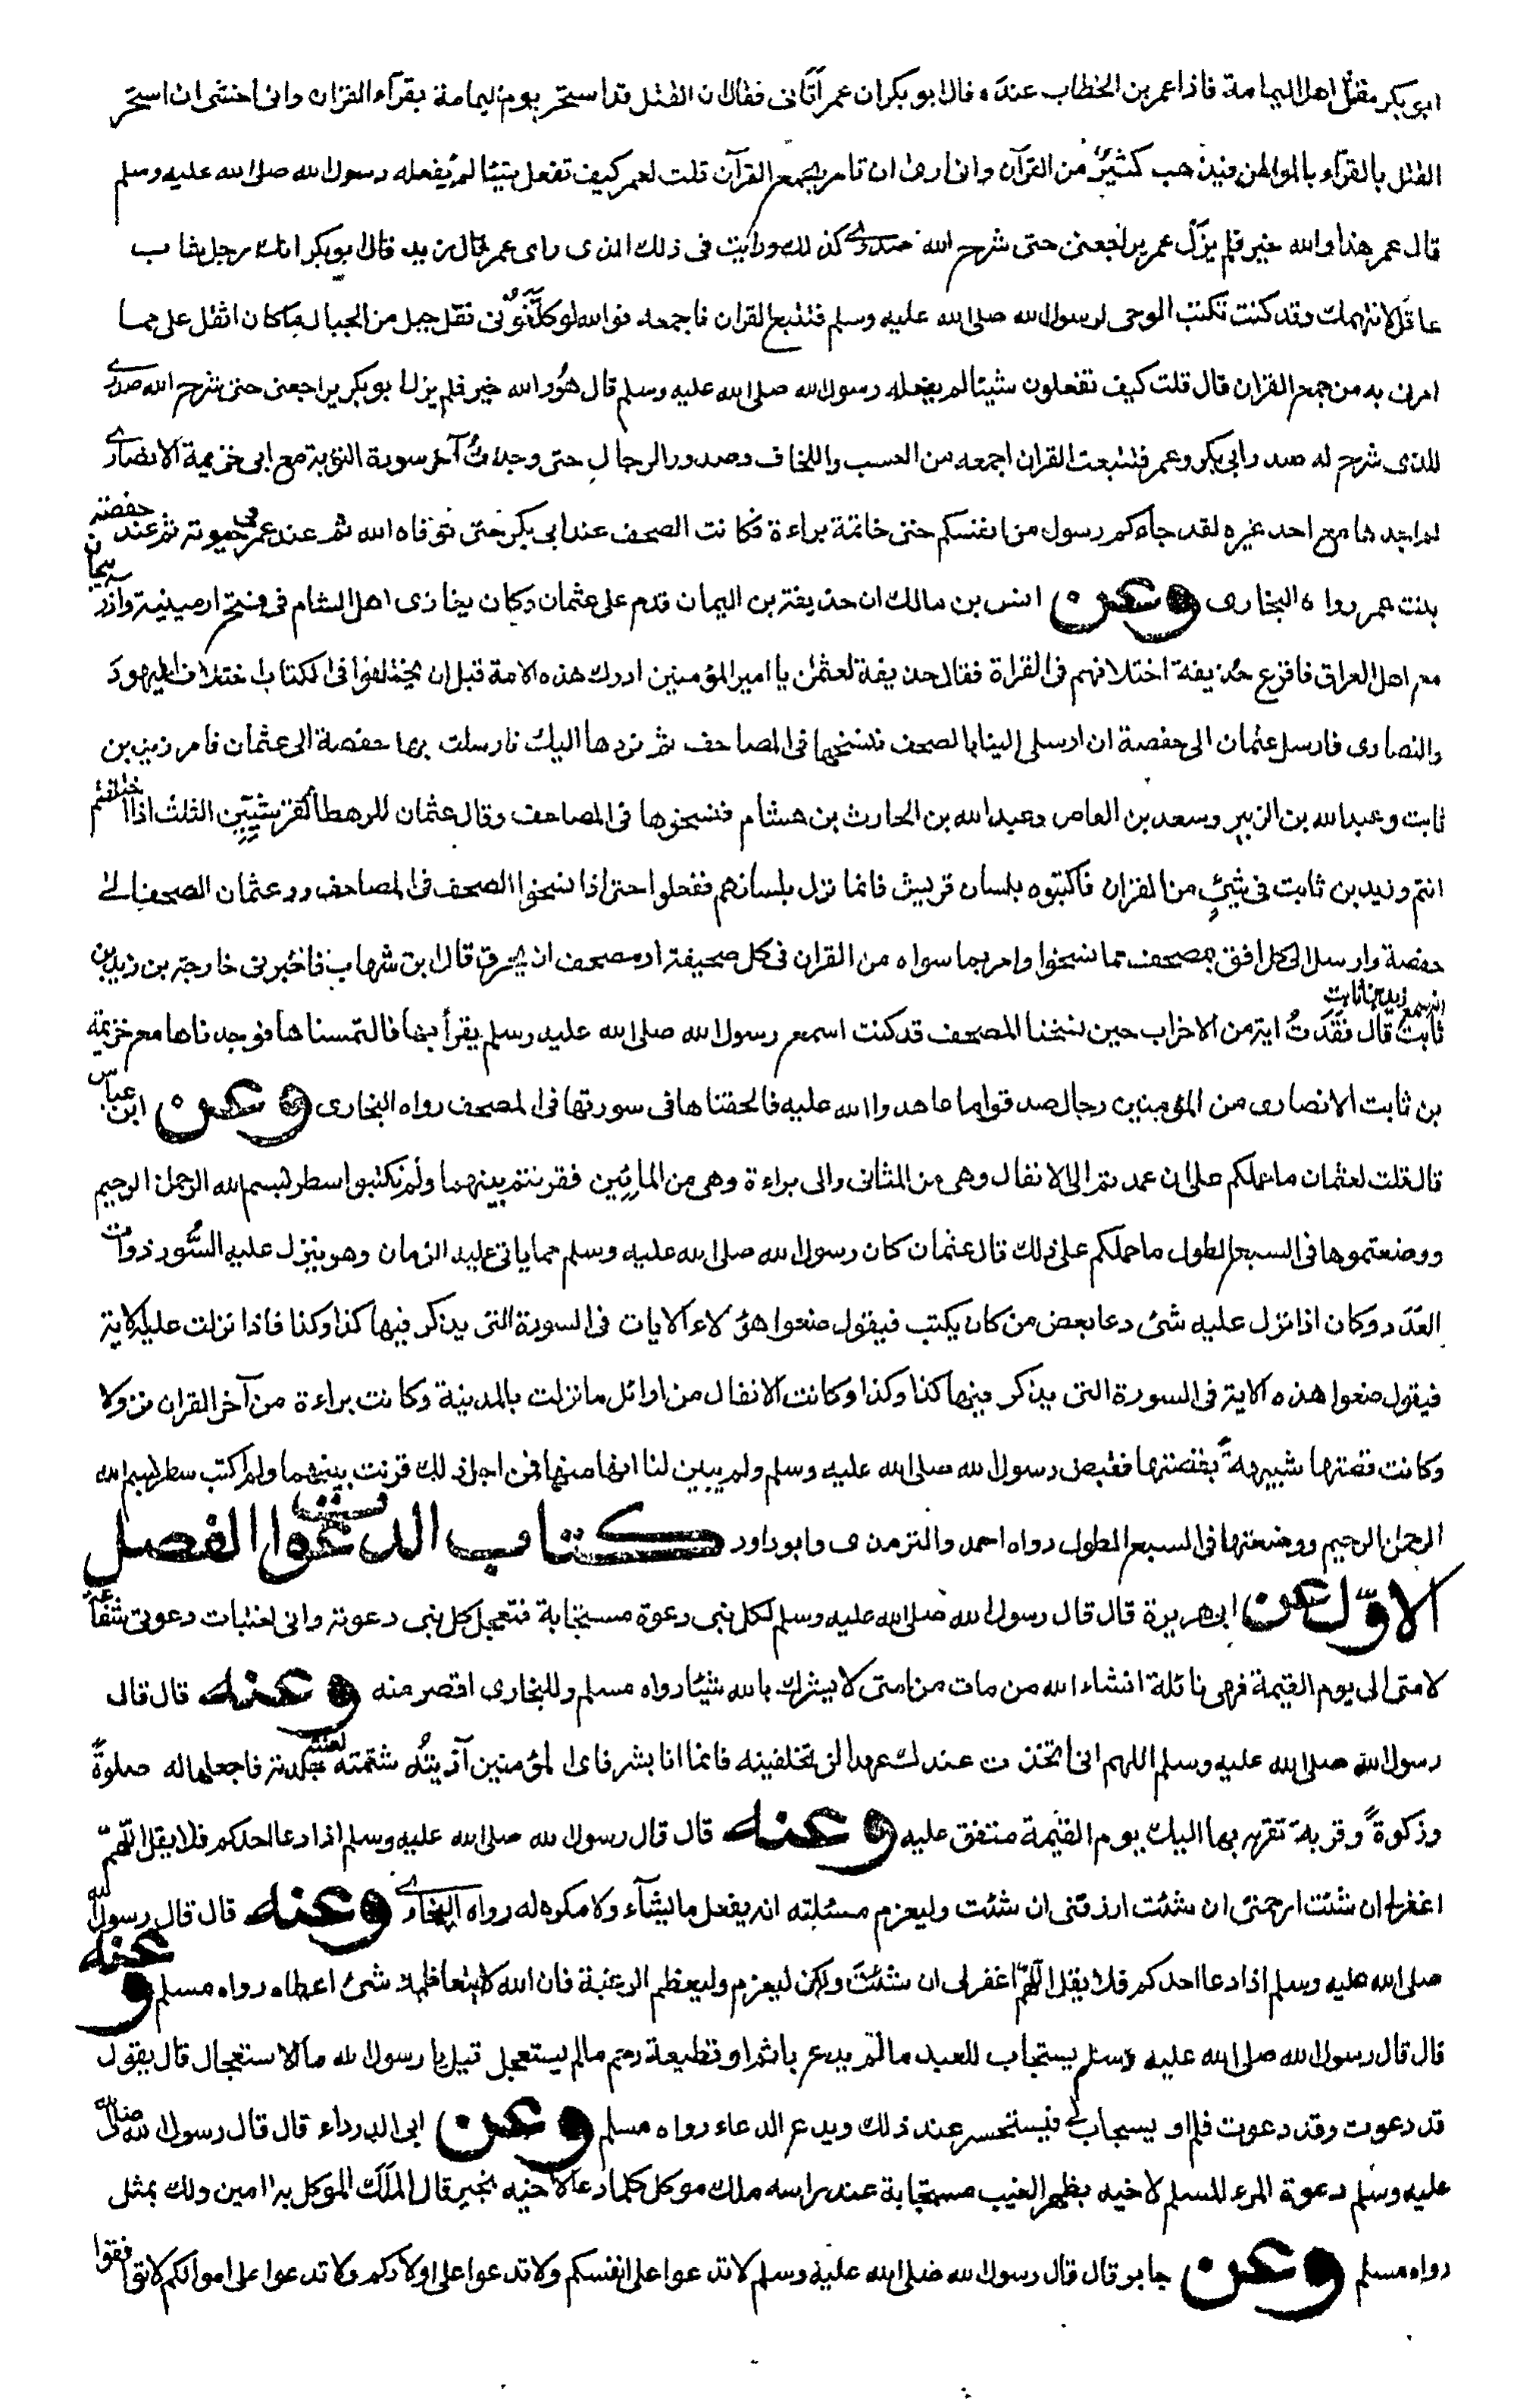 ابو بكر مقتل اهل اليمامة فاذا عمر بن الخطاب عنده قال ابو بكر ان عمر اَتَانى فقال ان القتل قد استحر يوم اليمامة بقرآء القران وانى اخشى ان استحر
القتل بالقرّاء بالمواطن فيذهب كثيرٌ من القرآن وانى ارى ان تامر بجمع القرآن قلت لعمر كيف تفعل شيئا لم يفعله رسول الله صلى الله عليه وسلم
قال عمر هذا والله خير فلم يزل عمر يراجعنى حتى شرح الله صدرى كذلك ورايت فى ذلك الذى راى عمر قال زيد قال ابو بكر انك رجل شاب
عاقل لا نتهمك وقد كنت تكتب الوحى لرسول الله صلى الله عليه وسلم فتتبع القران فاجمعه فوالله لو كلّفونى نقل جبل من الجبال ما كان اثقل على مما
امرنى به من جمع القران قال قلت كيف تفعلون شيئا لم يفعله رسول الله صلى الله عليه وسلم قال هُو والله خير فلم يزل ابو بكر يراجعنى حتى شرح الله صدرى
للذى شرح له صدر ابى بكر وعمر فتتبعت القران اجمعه من العسب واللخاف وصدور الرجال حتى وجدتُ آخر سورة التوبة مع ابى خزيمة الانصارى
لم اجدها مع احد غيره لقد جاءكم رسول من انفسكم حتى خاتمة براءة فكانت الصحف عند ابى بكر حتى توفاه الله ثم عند عمر فى حيوته ثم عند حفصة
بنت عمر رواه البخارى وعن انس بن مالك ان حذيفة بن اليمان قدم على عثمان وكان يغازى اهل الشام فى فتح ارمينية وآذربيجان
مع اهل العراق فافزع حُذيفة اختلافهم فى القراة فقال حذيفة لعثمٰن يا امير المؤمنين ادرك هذه الامة قبل ان يختلفوا فى الكتاب اختلاف اليهود
والنصارى فارسل عثمان الى حفصة ان ارسلى الينا بالصحف ننسخها فى المصاحف ثم نردها اليك فارسلت بها حفصة الى عثمان فامر زيد بن
ثابت وعبد الله بن الزبير وسعد بن العاص وعبد الله بن الحارث بن هشام فنسخوها فى المصاحف وقال عثمان للرهط القرشيّين الثلث اذا اختلفتم
انتم وزيد بن ثابت فى شئٍ من القران فاكتبوه بلسان قريش فانما نزل بلسانهم ففعلوا حتى اذا نسخوا الصحف فى المصاحف رد عثمان الصحف الى
حفصة وارسل الى كل افق بمصحف مما نسخوا وامر بما سواه من القران فى كل صحيفة او مصحف ان يحرق قال ابن شهاب فاخبرنى خارجة بن زيد بن
ثابت انه سمع زيد بن ثابت قال فَقَدتُ اية من الاحزاب حين نسخنا المصحف قد كنت اسمع رسول الله صلى الله عليه وسلم يقرأ بها فالتمسناها فوجدناها مع خزيمة
بن ثابت الانصارى من المؤمنين رجال صدقوا ما عاهدوا الله عليه فالحقناها فى سورتها فى المصحف رواه البخارى وعن ابن عباس
قال قلت لعثمان ما حملكم على ان عمدتم الى الانفال وهى من المثانى والى براءة وهى من المائين فقرنتم بينهما ولم تكتبوا سطر بسم الله الرحمن الرحيم
ووضعتموها فى السبع الطول ما حملكم على ذلك قال عثمان كان رسول الله صلى الله عليه وسلم مما ياتى عليه الزمان وهو ينزل عليه السُّور ذوات
العدد وكان اذا نزل عليه شئ دعا بعض من كان يكتب فيقول ضعوا هؤلاء الايات فى السورة التى يذكر فيها كذا وكذا فاذا نزلت عليه الاية
فيقول ضعوا هذه الاية فى السورة التى يذكر فيها كذا وكذا وكانت الانفال من اوائل ما نزلت بالمدينة وكانت براءة من آخر القران نزولا
وكانت قصتها شبيهةً بقصتها فقبض رسول الله صلى الله عليه وسلم ولم يبين لنا انها منها فمن اجل ذلك قرنت بينهما ولم اكتب سطر بسم الله
الرحمن الرحيم ووضعتها فى السبع الطول رواه احمد والترمذى وابو داود كتاب الدعوات الفصل
الاوّل عن ابى هريرة قال قال رسول الله صلى الله عليه وسلم لكل نبى دعوة مستجابة فتعجل كل نبى دعوته وانى اختبات دعوتى شفاعة
لامتى الى يوم القيمة فهى نائلة انشاء الله من مات من امتى لا يشرك بالله شيئا رواه مسلم وللبخارى اقصر منه وعنه قال قال
رسول الله صلى الله عليه وسلم اللهم انى اتخذت عندك عهدا لن تخلفينه فانما انا بشر فاى المؤمنين آذيتُه شتمته لعنته جلدته فاجعلها له صلوةً
وزكوةً وقربة تقربه بها اليك يوم القيٰمة متفق عليه وعنه قال قال رسول الله صلى الله عليه وسلم اذا دعا احدكم فلا يقل اللّٰهمّ
اغفر لى ان شئت ارحمنى ان شئت ارزقنى ان شئت وليعزم مسئلته انه يفعل ما يشآء ولا مكره له رواه البخارى وعنه قال قال رسول الله
صلى الله عليه وسلم اذا دعا احدكم فلا يقل اللّٰهمّ اغفر لى ان شئتَ ولكن ليعزم وليعظم الرغبة فان الله لا يتعاظمه شئ اعطاه رواه مسلم وعنه
قال قال رسول الله صلى الله عليه وسلم يستجاب للعبد ما لم يدع باثم او قطيعة رحم مالم يستعجل قيل يا رسول الله ما الاستعجال قال يقول
قد دعوت وقد دعوت فلم ار يستجاب لى فيستحسر عند ذلك ويدع الدعاء رواه مسلم وعن ابى الدرداء قال قال رسول الله صلى الله
عليه وسلم دعوة المرء المسلم لاخيه بظهر الغيب مستجابة عند راسه ملك موكل كلما دعا لاخيه بخير قال المَلَك الموكل به امين ولك بمثل
رواه مسلم وعن جابر قال قال رسول الله صلى الله عليه وسلم لا تدعوا على انفسكم ولا تدعوا على اولادكم ولا تدعوا على اموالكم لا توافقوا